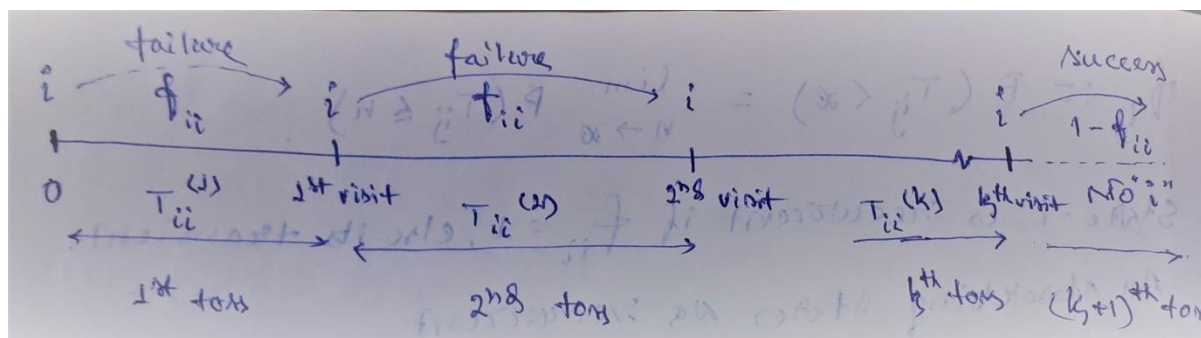 failure failure success
i f_{ii} i f_{ii} i i 1-f_{ii}
0 T_{ii}^{(1)} 1st visit T_{ii}^{(2)} 2nd visit T_{ii}^{(k)} kth visit No "i"
1st toss 2nd toss kth toss (k+1)th toss